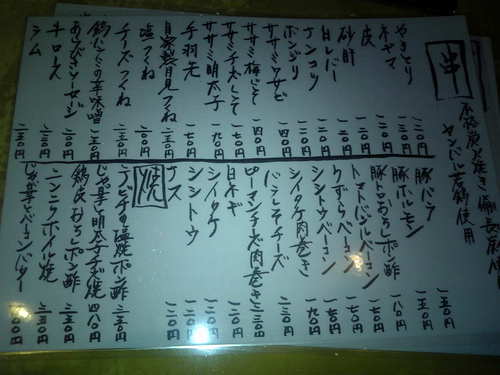 串
本格炭火焼き 備長炭使用
ヤンバル若鶏使用
やきとり 一二〇円
ネギマ
皮 一二〇円
砂肝 一二〇円
白レバー
ナンコツ 一二〇円
ボンジリ 一二〇円
ササミワサビ 一四〇円
ササミ梅しそ 一四〇円
ササミチーズしそ 一七〇円
ササミ明太子 一九〇円
手羽先 一七〇円
自家製月見つくね 二五〇円
塩つくね 二〇〇円
チーズつくね 二三〇円
鶏にんにくの芽味噌 二五〇円
あらびきソーセージ 二〇〇円
牛ロース 二五〇円
ラム 二五〇円
豚バラ 一五〇円
豚ホルモン 一五〇円
豚トロおろしポン酢 一八〇円
トマトバジルベーコン 一七〇円
うずらベーコン 一七〇円
シシトウベーコン 一九〇円
シイタケ肉巻き
バラしそチーズ 二三〇円
ピーマンチーズ肉巻き 二三〇円
白ネギ 一二〇円
シイタケ 一二〇円
シシトウ 一二〇円
ナス 一二〇円
焼
テビチの塩焼ポン酢 三五〇円
じゃが芋明太子チーズ焼 四八〇円
鶏皮おろしポン酢 三五〇円
ニンニクホイル焼 三五〇円
じゃが芋ベーコンバター